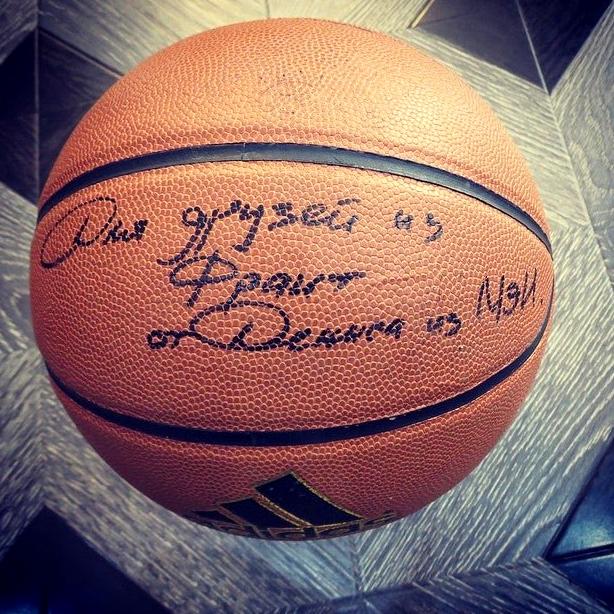 Для друзей из
Франт
от Дениса из МЭИ.
adidas